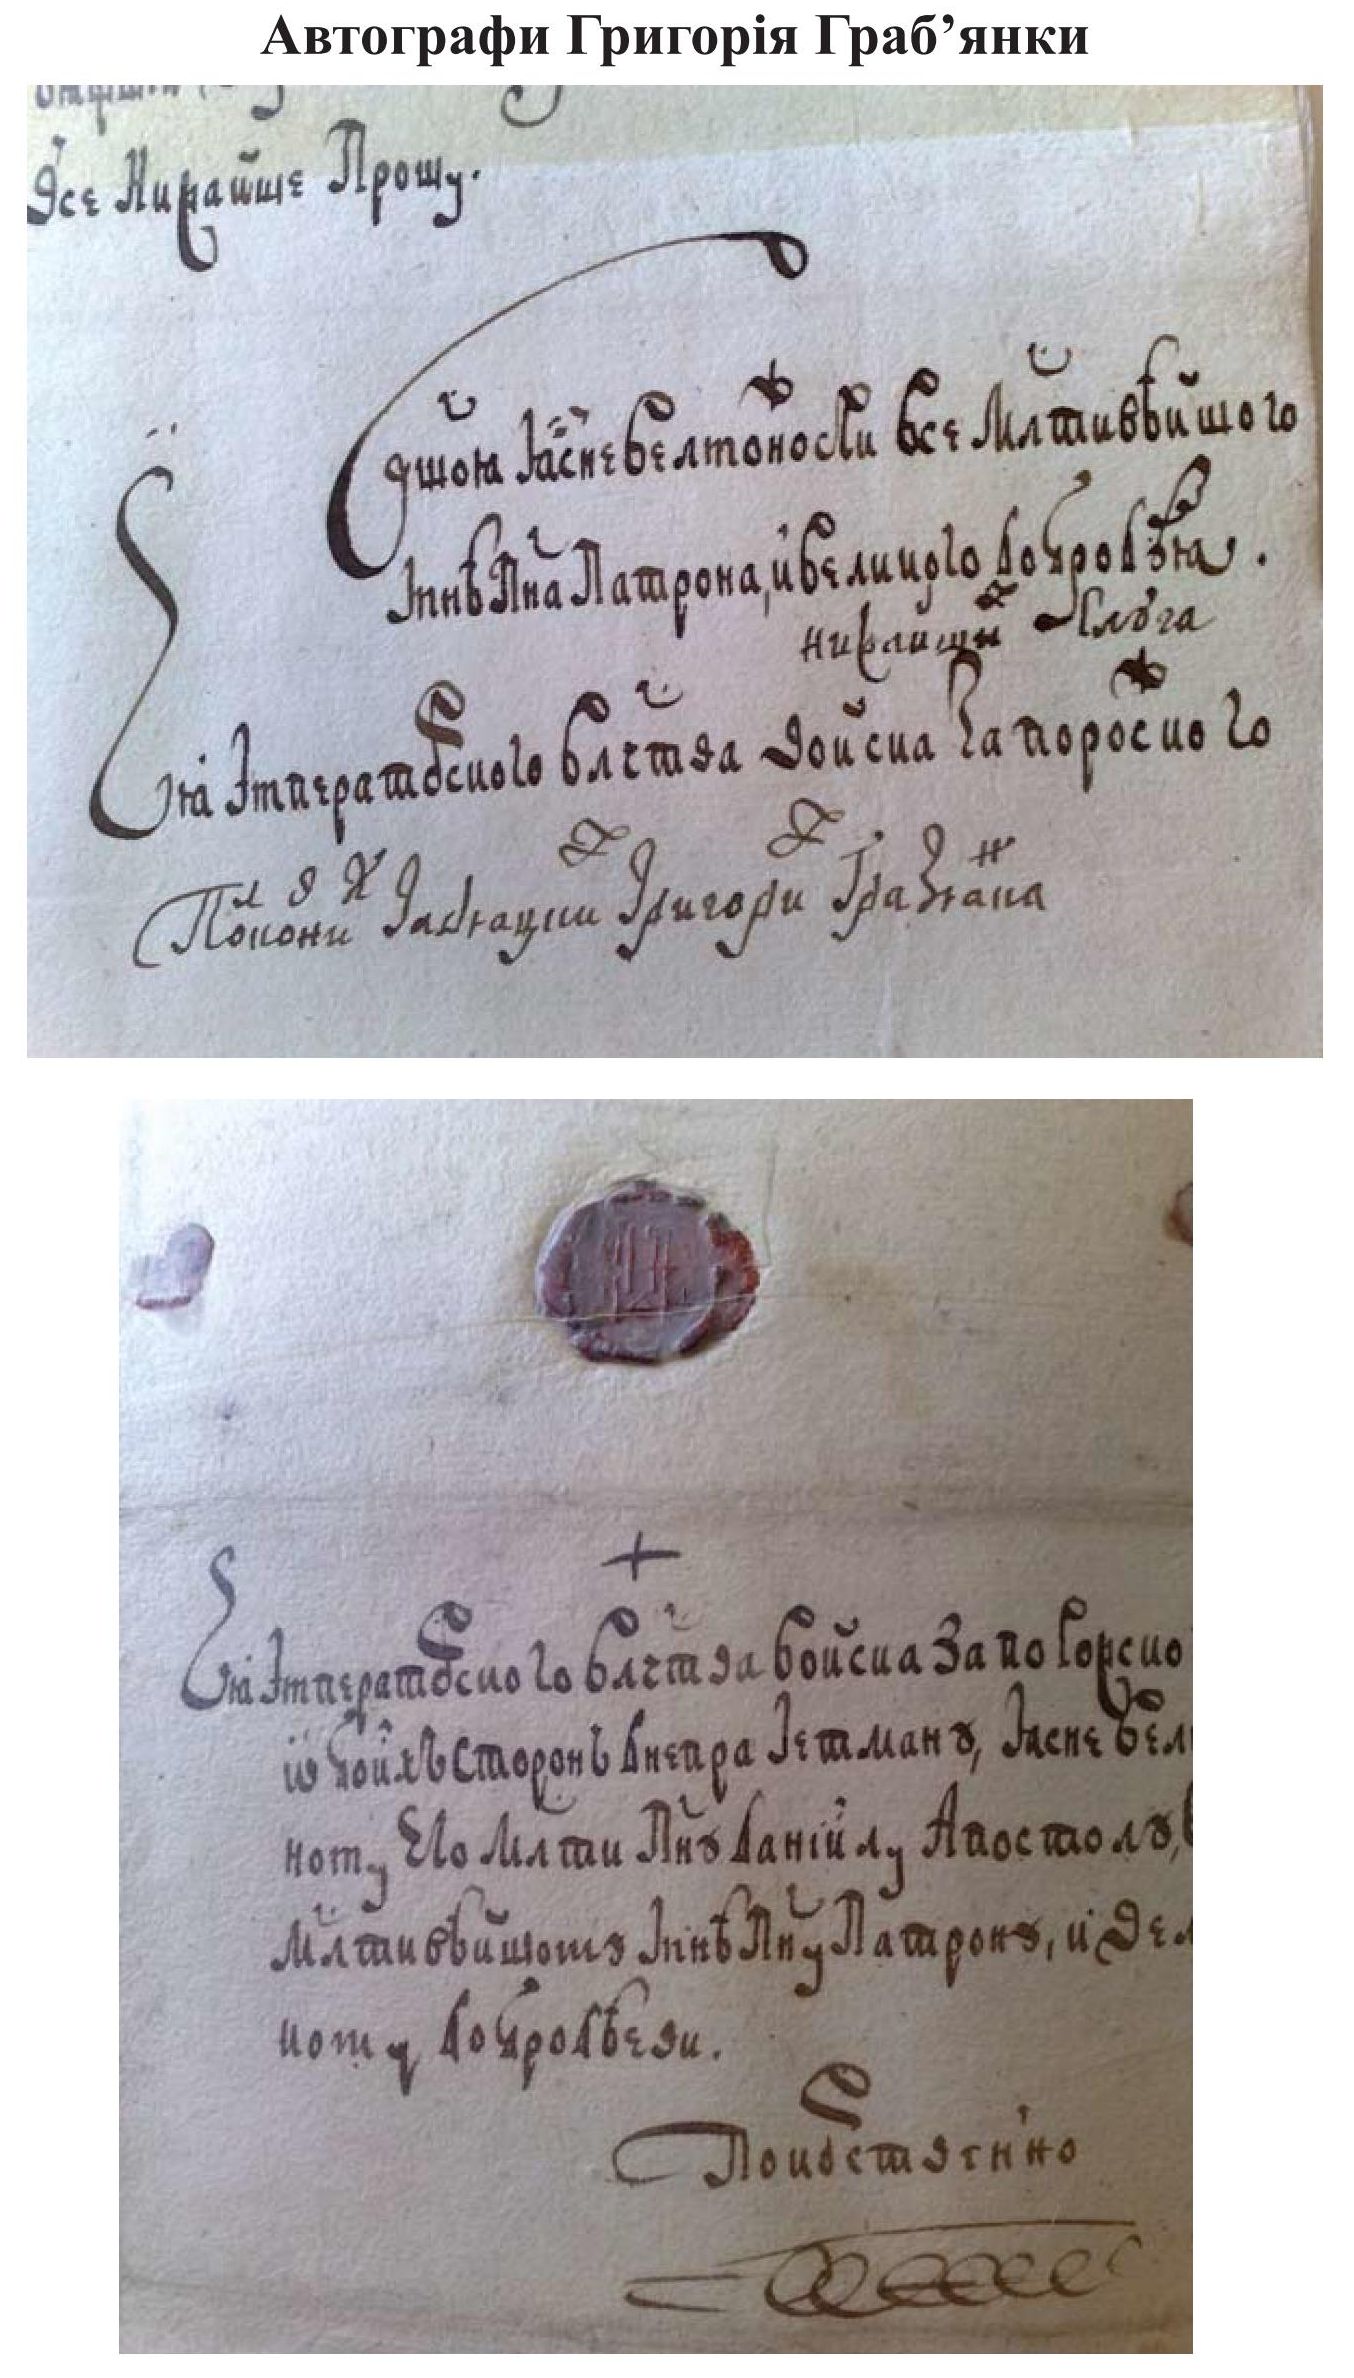 Автографи Григорія Граб’янки
Прошу.
Вшой Ясневелможности все Млтивѣйшого
Мнѣ Пна Патрона, и великого добродѣя.
нижайший слуга
Его Императорского влчтва Войска Запорозского
Полковник Гадяцкий Григорий Грабянка
+
Его Императорского влчтва войска Запорожско
ѡбойхъ сторонъ Днепра Гетману, Ясневел
ному Его Млти Пну Даніилу Апостолу,
Млтивѣйшому Мнѣ Пну Патрону, и Вел
кому добродѣеви.
Покорственно